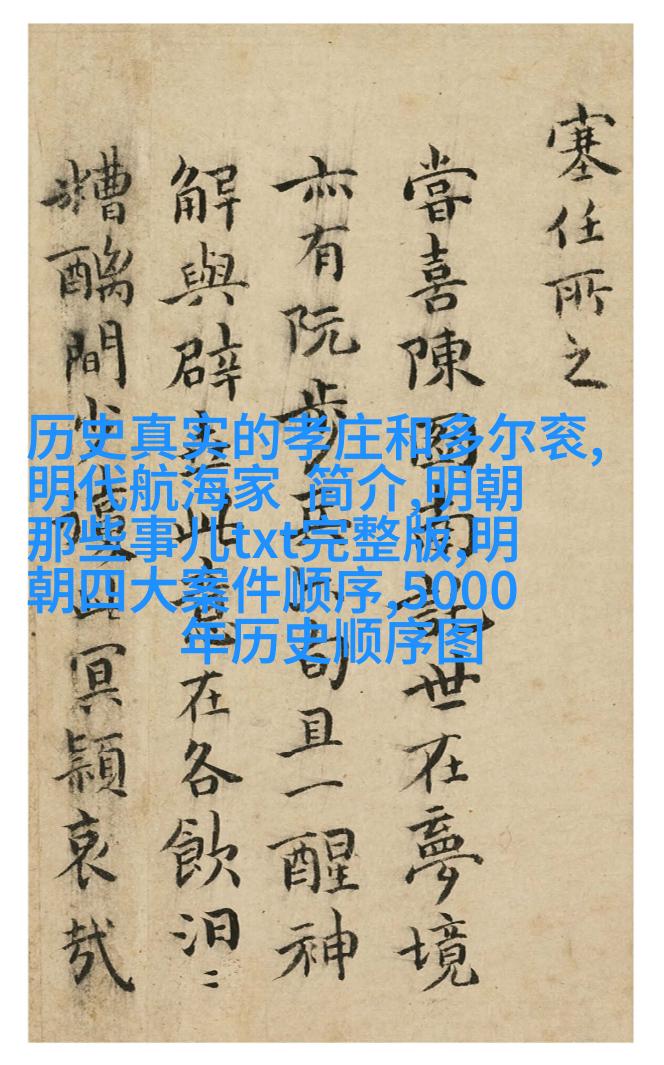 塞任所之
嘗喜陳南世在夢境
亦有阮步旬且一醒神
解與辟此意在各飲汨〻
糟醨間少冥穎哀哉
历史真实的孝庄和多尔衮,
明代航海家 简介,明朝
那些事儿txt完整版,明
朝四大案件顺序,5000
年历史顺序图